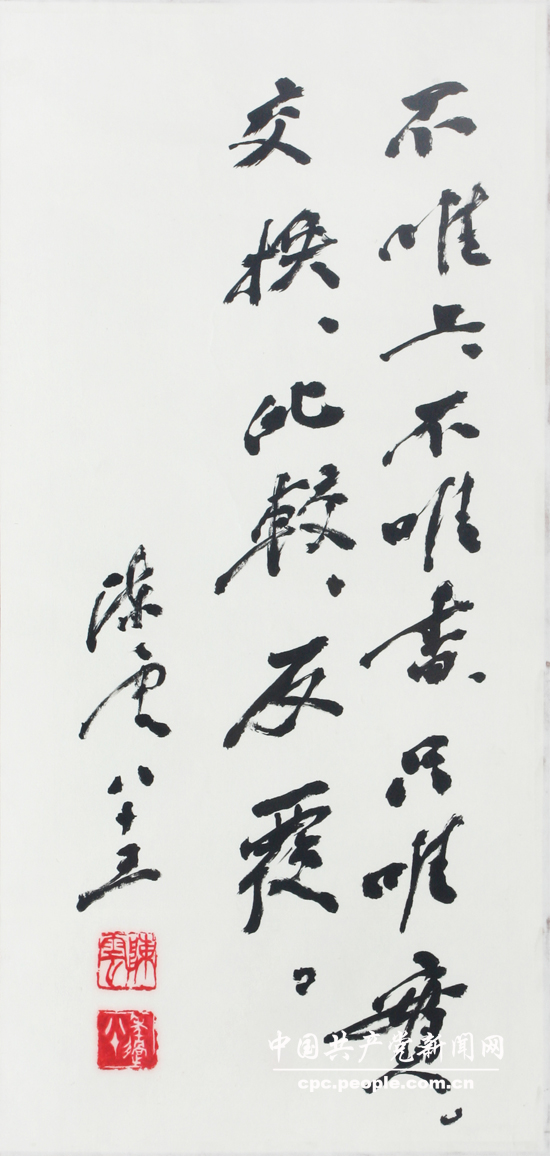 不唯上不唯書、只唯實。
交换、比較、反覆。
陈云八十三
陳雲
中国共产党新闻网
cpc.people.com.cn